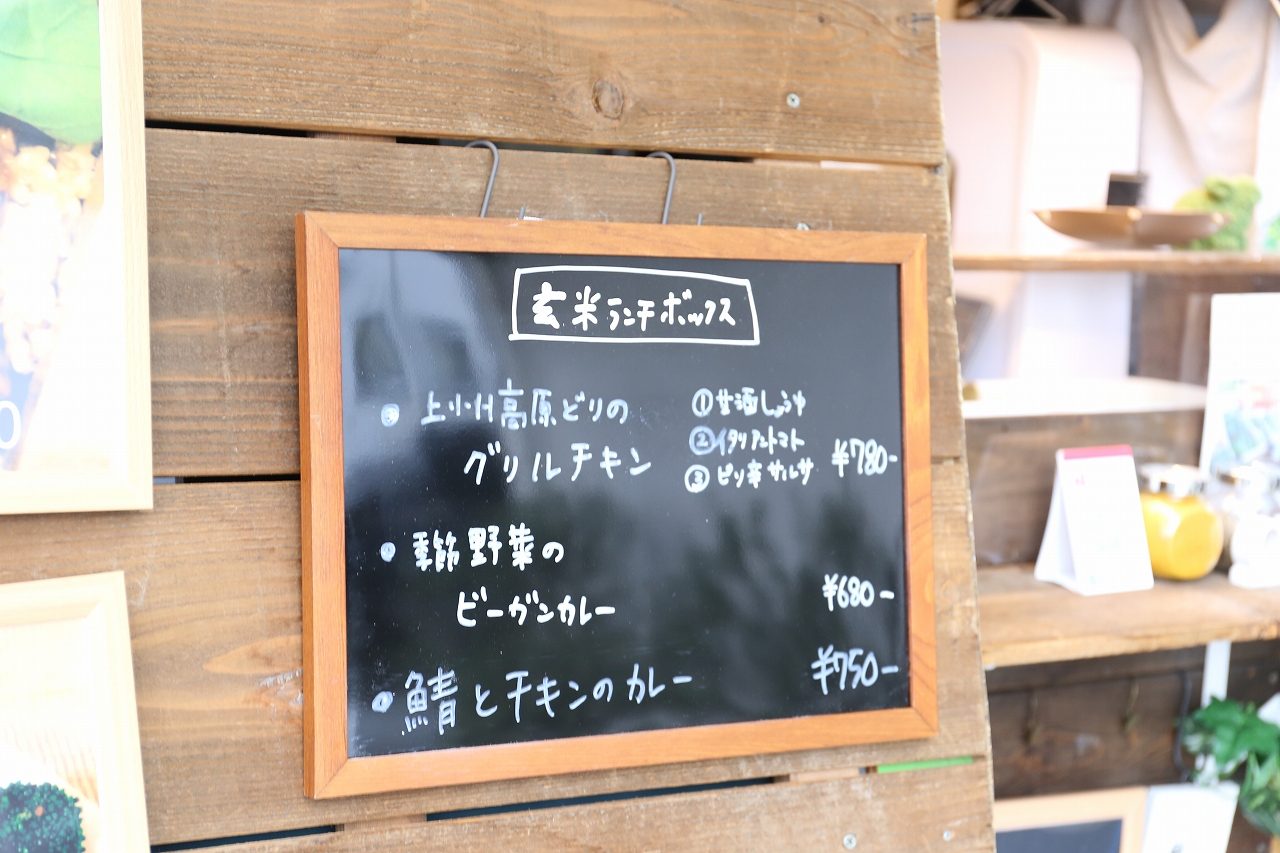 玄米ランチボックス
上州高原どりの
グリルチキン
①甘酒しょうゆ
②イタリアントマト
③ピリ辛サルサ
¥780-
季節野菜の
ビーガンカレー
¥680-
鯖とチキンのカレー
¥750-
0